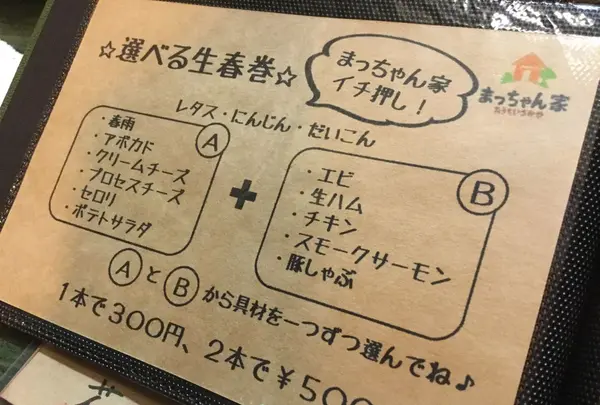 ☆選べる生春巻☆
まっちゃん家
イチ押し!
まっちゃん家
おうちいざかや
レタス・にんじん・だいこん
A
・春雨
・アボカド
・クリームチーズ
・プロセスチーズ
・セロリ
・ポテトサラダ
+
B
・エビ
・生ハム
・チキン
・スモークサーモン
・豚しゃぶ
AとBから具材を一つずつ選んでね♪
1本で300円、2本で¥500